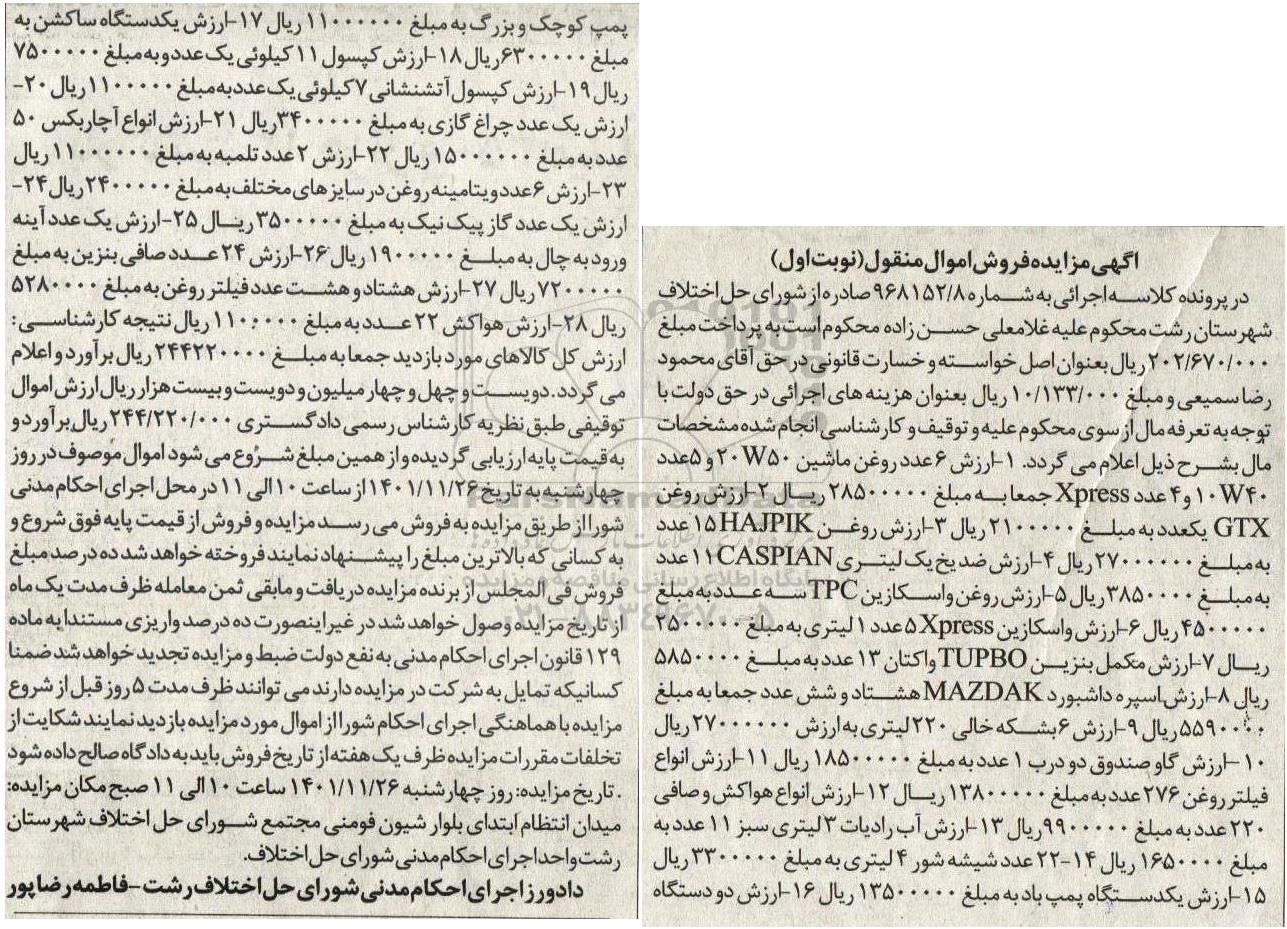 اگهی مزایده فروش اموال منقول (نوبت اول)
در پرونده کلاسه اجرائی به شماره ۹۶۸۱۵۲/۸ صادره از شورای حل اختلاف
شهرستان رشت محکوم علیه غلامعلی حسن زاده محکوم است به پرداخت مبلغ
۲۰۲/۶۷۰/۰۰۰ ریال بعنوان اصل خواسته و خسارت قانونی در حق آقای محمود
رضا سمیعی و مبلغ ۱۰/۱۳۳/۰۰۰ ریال بعنوان هزینه های اجرائی در حق دولت با
توجه به تعرفه مال از سوی محکوم علیه و توقیف و کارشناسی انجام شده مشخصات
مال بشرح ذیل اعلام می گردد. ۱-ارزش ۶عدد روغن ماشین ۲۰W۵۰ و ۵عدد
۱۰W۴۰ و ۴عدد Xpress جمعا به مبلغ ۲۸۵۰۰۰۰۰ ریال ۲-ارزش روغن
GTX یکعدد به مبلغ ۲۱۰۰۰۰۰ ریال ۳-ارزش روغن HAJPIK ۱۵عدد
به مبلغ ۲۷۰۰۰۰۰۰ ریال ۴-ارزش ضد یخ یک لیتری CASPIAN ۱۱عدد
به مبلغ ۳۸۵۰۰۰۰ ریال ۵-ارزش روغن واسکازین TPC سه عدد به مبلغ
۴۵۰۰۰۰۰ ریال ۶-ارزش واسکازین Xpress ۵عدد ۱لیتری به مبلغ ۲۵۰۰۰۰۰
ریال ۷-ارزش مکمل بنزین TUPBO واکتان ۱۳عدد به مبلغ ۵۸۵۰۰۰۰
ریال ۸-ارزش اسپره داشبورد MAZDAK هشتاد و شش عدد جمعا به مبلغ
۵۵۹۰۰۰۰۰ ریال ۹-ارزش ۶بشکه خالی ۲۲۰لیتری به ارزش ۲۷۰۰۰۰۰۰ ریال
۱۰-ارزش گاو صندوق دو درب ۱عدد به مبلغ ۱۸۵۰۰۰۰۰ ریال ۱۱-ارزش انواع
فیلتر روغن ۲۷۶عدد به مبلغ ۱۳۸۰۰۰۰۰ ریال ۱۲-ارزش انواع هواکش و صافی
۲۲۰عدد به مبلغ ۹۹۰۰۰۰۰ ریال ۱۳-ارزش آب رادیات ۳لیتری سبز ۱۱عدد به
مبلغ ۱۶۵۰۰۰۰ ریال ۱۴-۲۲عدد شیشه شور ۴لیتری به مبلغ ۳۳۰۰۰۰۰ ریال
۱۵-ارزش یکدستگاه پمپ باد به مبلغ ۱۳۵۰۰۰۰۰ ریال ۱۶-ارزش دو دستگاه
پمپ کوچک و بزرگ به مبلغ ۱۱۰۰۰۰۰۰ ریال ۱۷-ارزش یکدستگاه ساکشن به
مبلغ ۶۳۰۰۰۰۰ ریال ۱۸-ارزش کپسول ۱۱کیلوئی یک عدد و به مبلغ ۷۵۰۰۰۰۰
ریال ۱۹-ارزش کپسول آتشنشانی ۷کیلوئی یک عدد به مبلغ ۱۱۰۰۰۰۰ ریال ۲۰-
ارزش یک عدد چراغ گازی به مبلغ ۳۴۰۰۰۰۰ ریال ۲۱-ارزش انواع آچار بکس ۵۰
عدد به مبلغ ۱۵۰۰۰۰۰۰ ریال ۲۲-ارزش ۲عدد تلمبه به مبلغ ۱۱۰۰۰۰۰۰ ریال
۲۳-ارزش ۶عدد ویتامینه روغن در سایزهای مختلف به مبلغ ۲۴۰۰۰۰۰ ریال ۲۴-
ارزش یک عدد گاز پیک نیک به مبلغ ۳۵۰۰۰۰۰ ریال ۲۵-ارزش یک عدد آینه
ورود به چال به مبلغ ۱۹۰۰۰۰۰ ریال ۲۶-ارزش ۲۴عدد صافی بنزین به مبلغ
۷۲۰۰۰۰۰ ریال ۲۷-ارزش هشتاد و هشت عدد فیلتر روغن به مبلغ ۵۲۸۰۰۰۰
ریال ۲۸-ارزش هواکش ۲۲عدد به مبلغ ۱۱۰۰۰۰۰ ریال نتیجه کارشناسی:
ارزش کل کالاهای مورد بازدید جمعا به مبلغ ۲۴۴۲۲۰۰۰۰ ریال برآورد و اعلام
می گردد. دویست و چهل و چهار میلیون و دویست و بیست هزار ریال ارزش اموال
توقیفی طبق نظریه کارشناس رسمی دادگستری ۲۴۴/۲۲۰/۰۰۰ ریال برآورد و
به قیمت پایه ارزیابی گردیده و از همین مبلغ شروع می شود اموال موصوف در روز
چهارشنبه به تاریخ ۱۴۰۱/۱۱/۲۶ از ساعت ۱۰ الی ۱۱ در محل اجرای احکام مدنی
شورا از طریق مزایده به فروش می رسد مزایده و فروش از قیمت پایه فوق شروع و
به کسانی که بالاترین مبلغ را پیشنهاد نمایند فروخته خواهد شد ده درصد مبلغ
فروش فی المجلس از برنده مزایده دریافت و مابقی ثمن معامله ظرف مدت یک ماه
از تاریخ مزایده وصول خواهد شد در غیر اینصورت ده درصد واریزی مستندا به ماده
۱۲۹ قانون اجرای احکام مدنی به نفع دولت ضبط و مزایده تجدید خواهد شد ضمنا
کسانیکه تمایل به شرکت در مزایده دارند می توانند ظرف مدت ۵ روز قبل از شروع
مزایده با هماهنگی اجرای احکام شورا از اموال مورد مزایده بازدید نمایند شکایت از
تخلفات مقررات مزایده ظرف یک هفته از تاریخ فروش باید به دادگاه صالح داده شود
. تاریخ مزایده: روز چهارشنبه ۱۴۰۱/۱۱/۲۶ ساعت ۱۰ الی ۱۱ صبح مکان مزایده:
میدان انتظام ابتدای بلوار شیون فومنی مجتمع شورای حل اختلاف شهرستان
رشت واحد اجرای احکام مدنی شورای حل اختلاف.
دادورز اجرای احکام مدنی شورای حل اختلاف رشت - فاطمه رضاپور